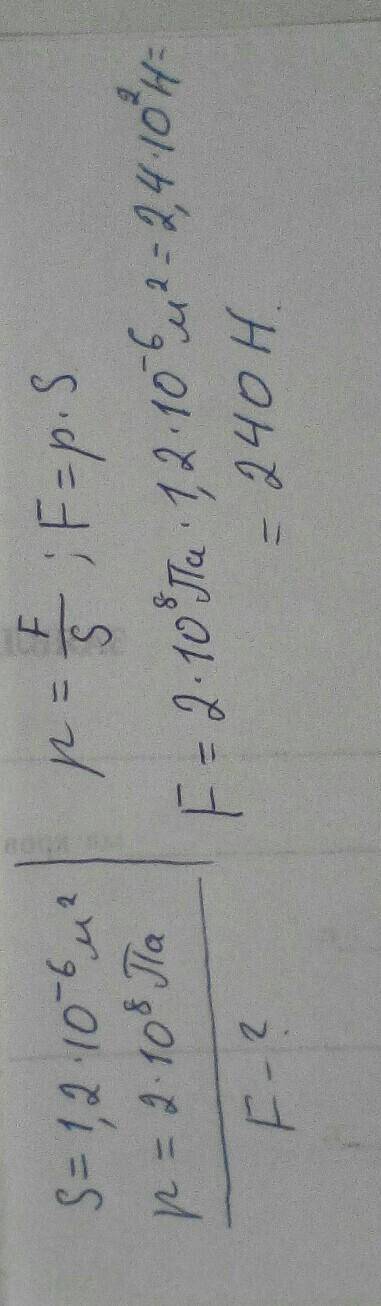 S = 1,2·10⁻⁶ м²
p = 2·10⁸ Па
F - ?
p = F/S ; F = p·S
F = 2·10⁸ Па · 1,2·10⁻⁶ м² = 2,4·10² Н =
= 240 Н.